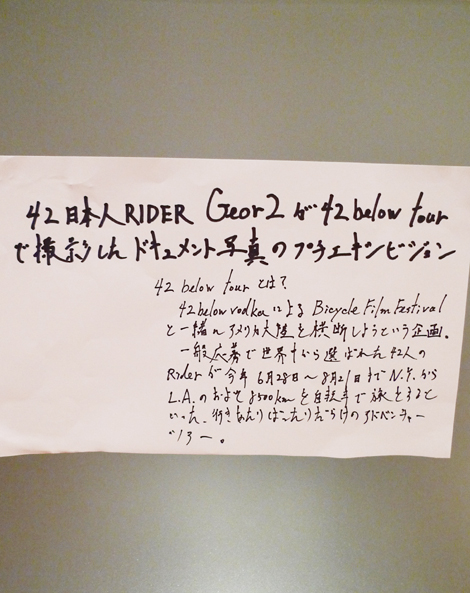 42日本人RIDER Geor2が42below tour
で撮影したドキュメント写真のプチエキシビジョン
42 below tour とは？
42below vodkaによるBicycle Film Festival
と一緒にアメリカ大陸を横断しようという企画。
一般応募で世界中から選ばれた42人の
Riderが今年6月28日〜8月21日までN.Y.から
L.A.のおよそ8500kmを自転車で旅をすると
いった、行きあたりばったりだらけのアドベンチャー